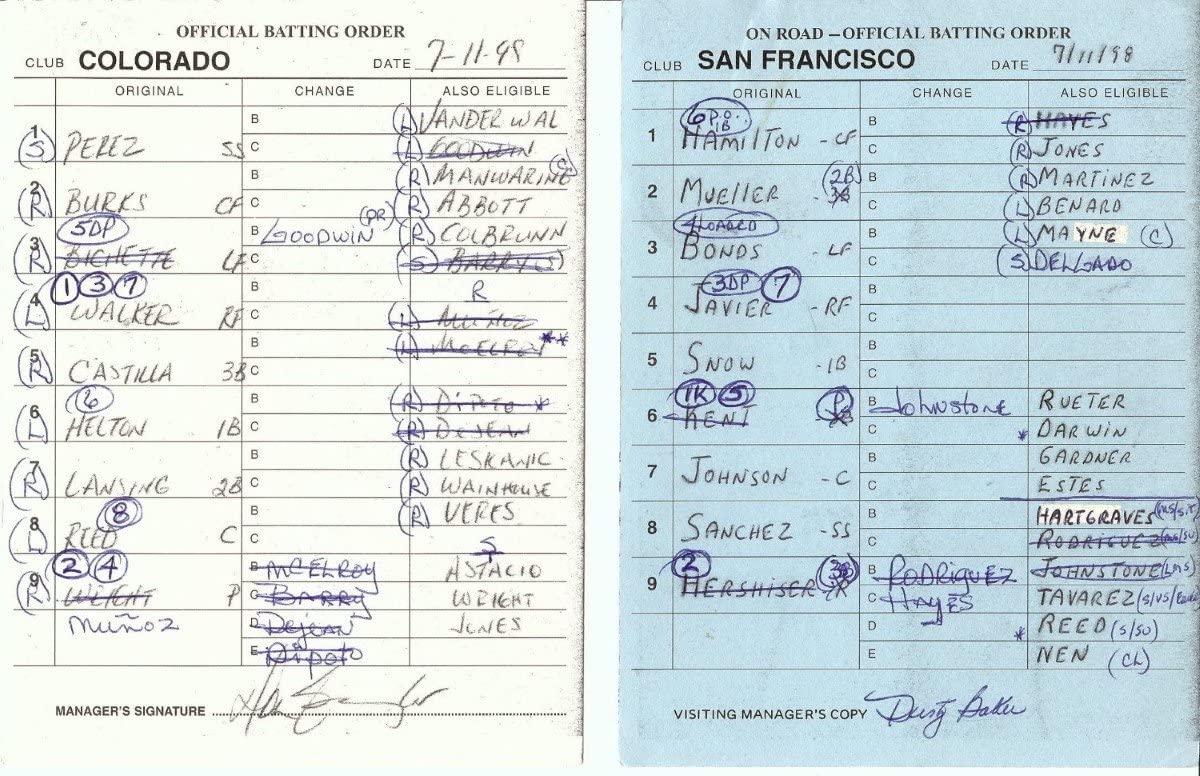 OFFICIAL BATTING ORDER
CLUB COLORADO DATE 7-11-98
ORIGINAL CHANGE ALSO ELIGIBLE
B (L) VANDER WAL
1 (S) PEREZ SS C (L) GOODWIN
B (R) MANWARING (C)
2 (R) BURKS CF C (R) ABBOTT
5DP B GOODWIN (PR) (R) COLBRUNN
3 (R) BICHETTE LF C (S) BARRY (S)
1 3 7 B R
4 (L) WALKER RF C (L) MUÑOZ
B (L) McELROY **
5 (R) CASTILLA 3B C
6 B (R) DIPOTO *
6 (L) HELTON 1B C (R) DEJEAN
B (R) LESKANIC
7 (R) LANSING 2B C (R) WAINHOUSE
8 B (R) VERES
8 (L) REED C C S
2 4 B McELROY ASTACIO
9 (R) WRIGHT P C BARRY WRIGHT
MUÑOZ D Dejean JONES
E Dipoto
MANAGER'S SIGNATURE
ON ROAD – OFFICIAL BATTING ORDER
CLUB SAN FRANCISCO DATE 7/11/98
ORIGINAL CHANGE ALSO ELIGIBLE
6 P.O. 1B B (R) HAYES
1 HAMILTON - CF C (R) JONES
(2B) B (R) MARTINEZ
2 MUELLER - 3B C (L) BENARD
4LOADED B (L) MAYNE (C)
3 BONDS - LF C (S) DELGADO
3DP 7 B
4 JAVIER - RF C
B
5 SNOW - 1B C
1K 5 P B Johnstone RUETER
6 KENT 2B C * DARWIN
B GARDNER
7 JOHNSON - C C ESTES
B HARTGRAVES
8 SANCHEZ - SS C RODRIGUEZ
2 3B B RODRIGUEZ JOHNSTONE
9 HERSHISER - P C HAYES TAVAREZ
D * REED (S/SU)
E NEN (CL)
VISITING MANAGER'S COPY Dusty Baker